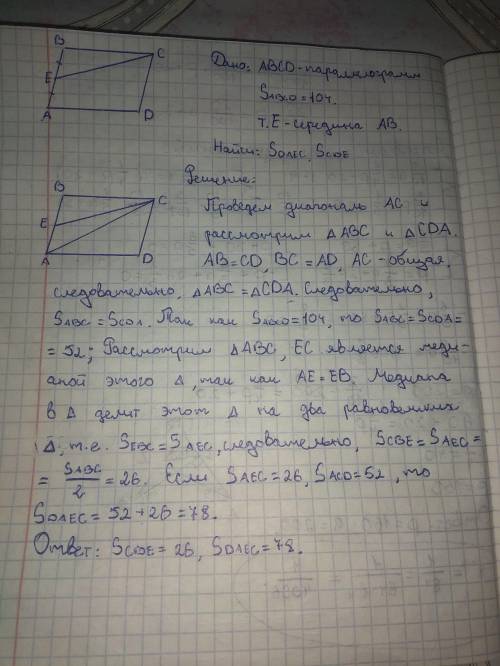 B
C
E
A
D
Дано: ABCD-параллелограмм
SABCD=104.
т.E-середина AB.
Найти: SDAEC, SCBE
Решение:
B
C
E
A
D
Проведём диагональ AC и
рассмотрим ΔABC и ΔCDA.
AB=CD, BC=AD, AC-общая,
следовательно, ΔABC=ΔCDA. Следовательно,
SABC=SCDA. Так как SABCD=104, то SABC=SCDA=
=52; Рассмотрим ΔABC, EC является меди-
аной этого Δ, так как AE=EB. Медиана
в Δ делит этот Δ на два равновеликих
Δ, т.е. SEBC=SAEC, следовательно, SCBE=SAEC=
= SABC/2 = 26. Если SAEC=26, SACD=52, то
SDAEC=52+26=78.
Ответ: SCBE=26, SDAEC=78.